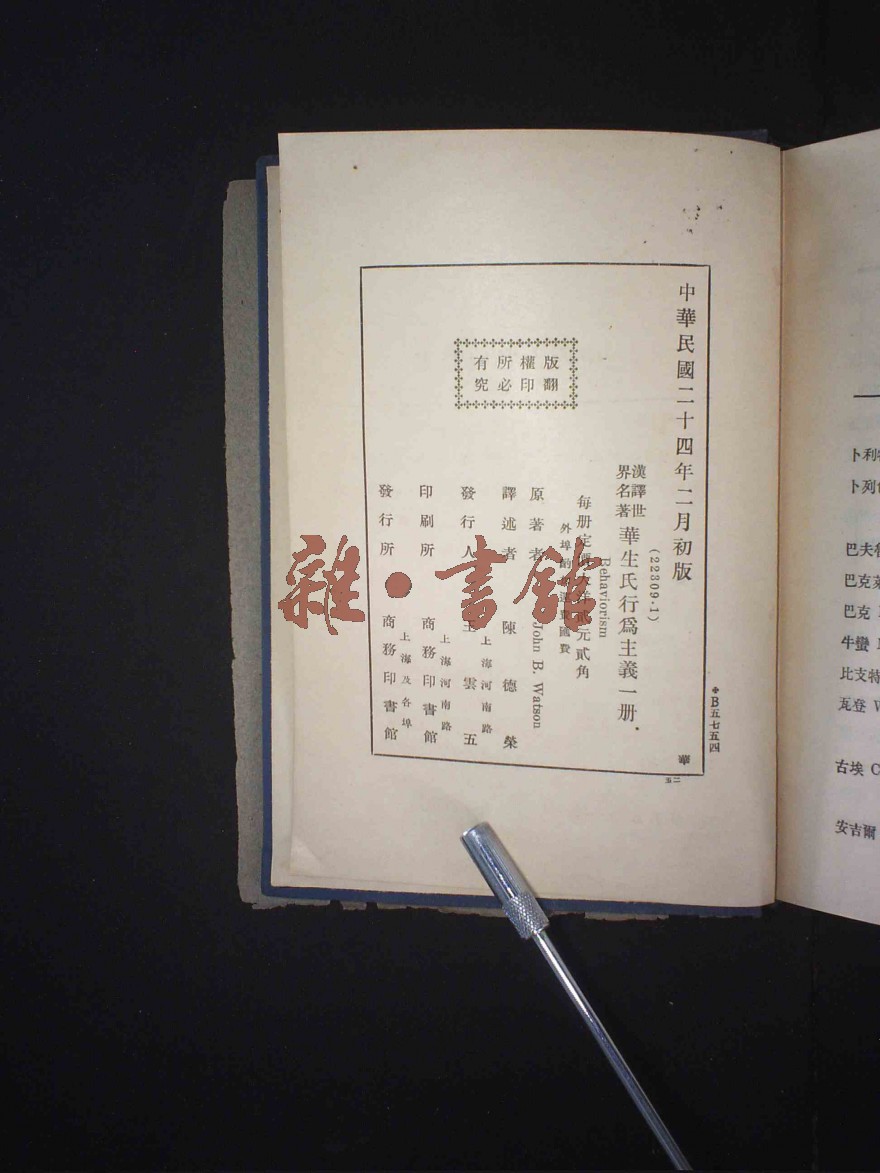 中華民國二十四年二月初版
(22309·1)
漢譯世界名著 華生氏行爲主義一册
Behaviorism
每册定價大洋貳元貳角
外埠酌加運費匯費
原著者 John B. Watson
譯述者 陳德榮
發行人 王雲五
上海河南路
印刷所 商務印書館
上海河南路
發行所 商務印書館
上海及各埠
版權所有
翻印必究
＊B五七五四
華
二五
雜·書館
卜列
巴夫
巴克
巴克
牛蠻
比支特
瓦登 W
古埃 C
安吉爾